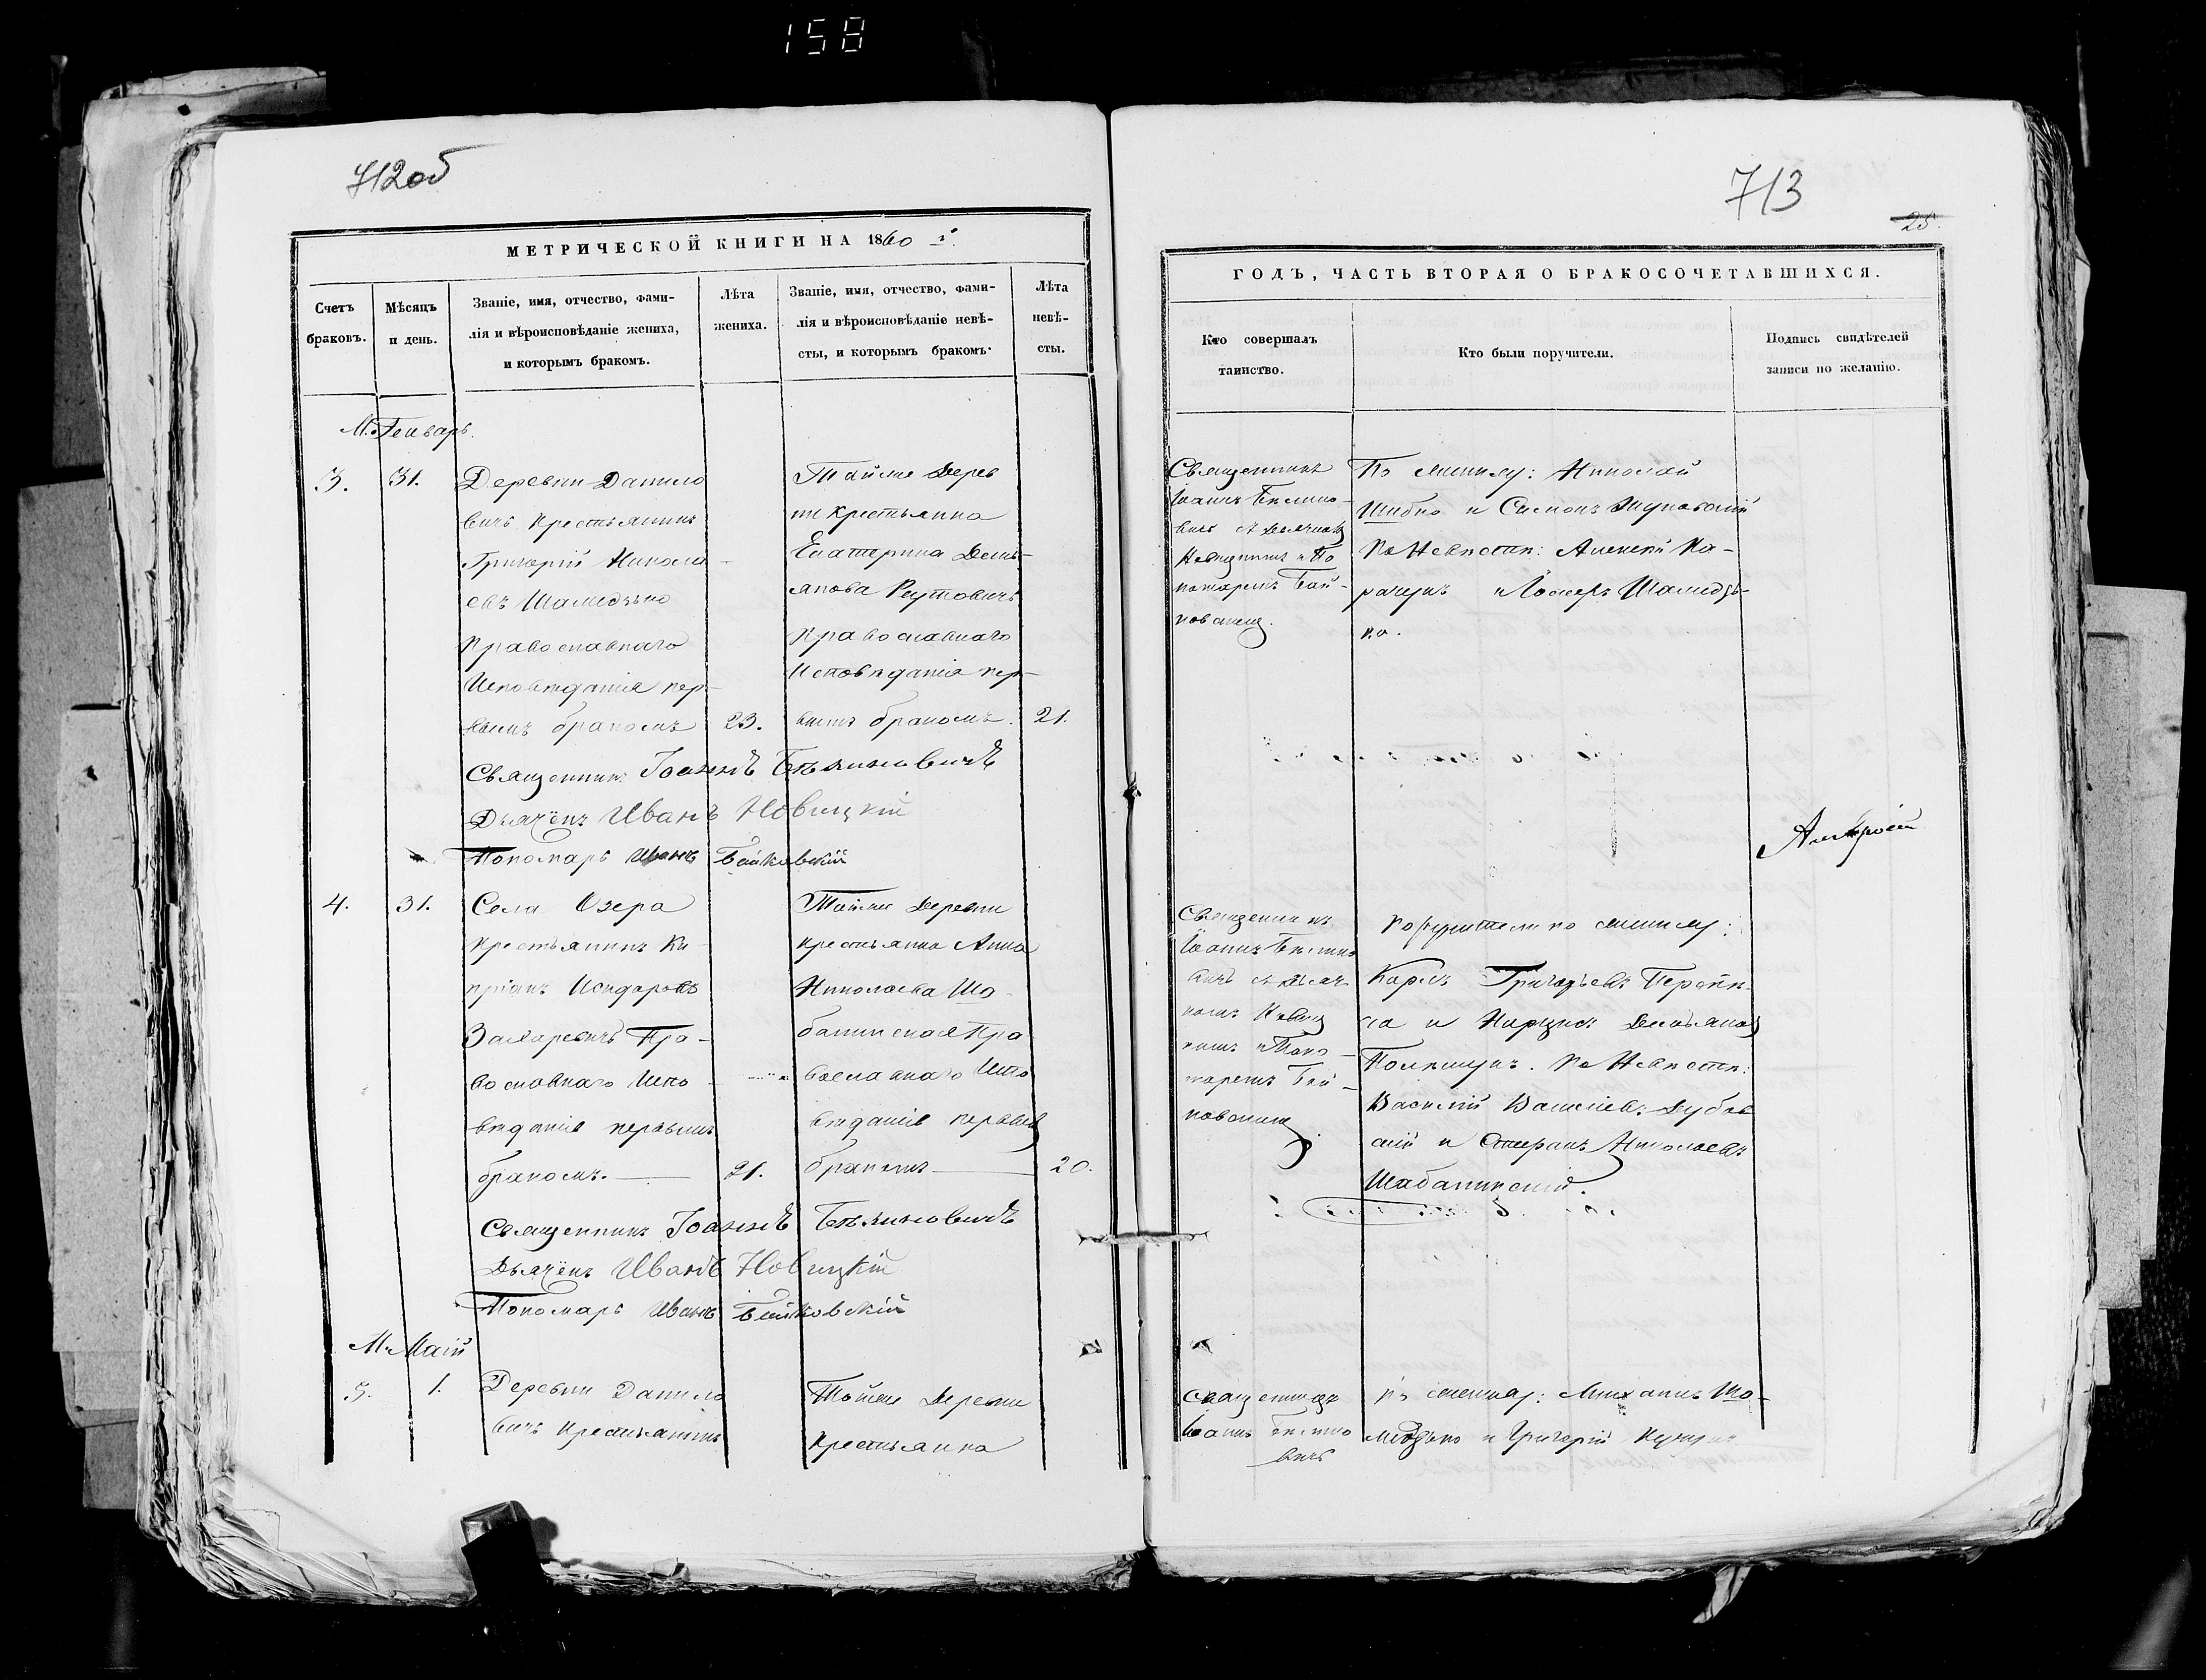 158
712об
МЕТРИЧЕСКОЙ КНИГИ НА 1860 г.
Счетъ
браковъ.
Мѣсяцъ
и день.
Званіе, имя, отчество, фами-
лія и вѣроисповѣданіе жениха,
и которымъ бракомъ.
Лѣта
жениха.
Званіе, имя, отчество, фами-
лія и вѣроисповѣданіе невѣ-
сты, и которымъ бракомъ.
Лѣта
невѣ-
сты.
М. Генварь.
3.
31.
Деревни Данило
вичь крестьянинъ
Григорій Никола
евъ Шамедзько
православнаго
Исповѣданія пер-
вымъ бракомъ
23.
Тойже Дерев
ни крестьянка
Екатерина Демь-
янова Реутовичъ
православнаго
Исповѣданія пер-
вымъ бракомъ.
21.
Священникъ Іоаннъ Бѣлиновичъ
Дьячекъ Иванъ Новицкій
Пономарь Иванъ Байковскій
4.
31.
Села Озера
крестьянинъ Ки
пріанъ Исидоровъ
Захаревичъ Пра-
вославнаго Испо
вѣданія первымъ
бракомъ.
21.
Тойже Деревни
крестьянка Анна
Николаева Ша
батинская Пра
вославнаго Испо
вѣданія первымъ
бракомъ
20.
Священникъ Іоаннъ Бѣлиновичъ
Дьячекъ Иванъ Новицкій
Пономарь Иванъ Байковскій
М. Маій
5.
1.
Деревни Данило
вичъ крестьянинъ
Тойже Деревни
крестьянка
713
25.
ГОДЪ, ЧАСТЬ ВТОРАЯ О БРАКОСОЧЕТАВШИХСЯ.
Кто совершалъ
таинство.
Кто были поручители.
Подпись свидѣтелей
записи по желанію.
Священникъ
Іоаннъ Бѣлино-
вичъ съ дьячкомъ
Новицкимъ и По
номаремъ Бай-
ковскимъ.
По женихѣ: Николай
и Симонъ
По Невѣстѣ: Алексѣй Ка-
рачунъ и Шамедзь-
ко.
Священникъ
Іоаннъ Бѣлино
вичъ съ дьяч
комъ Новиц
кимъ и Поно-
маремъ Бай-
ковскимъ.
Поручители по женихѣ:
Карпъ Григорьевъ
и Демьяновъ
По Невѣстѣ:
Василій Васильевъ Дубов
скій и Стефанъ Николаевъ
Шабатинскій.
Священникъ
Іоаннъ Бѣлино
вичъ
По женихѣ: Михаилъ Ша-
медзько и Григорій